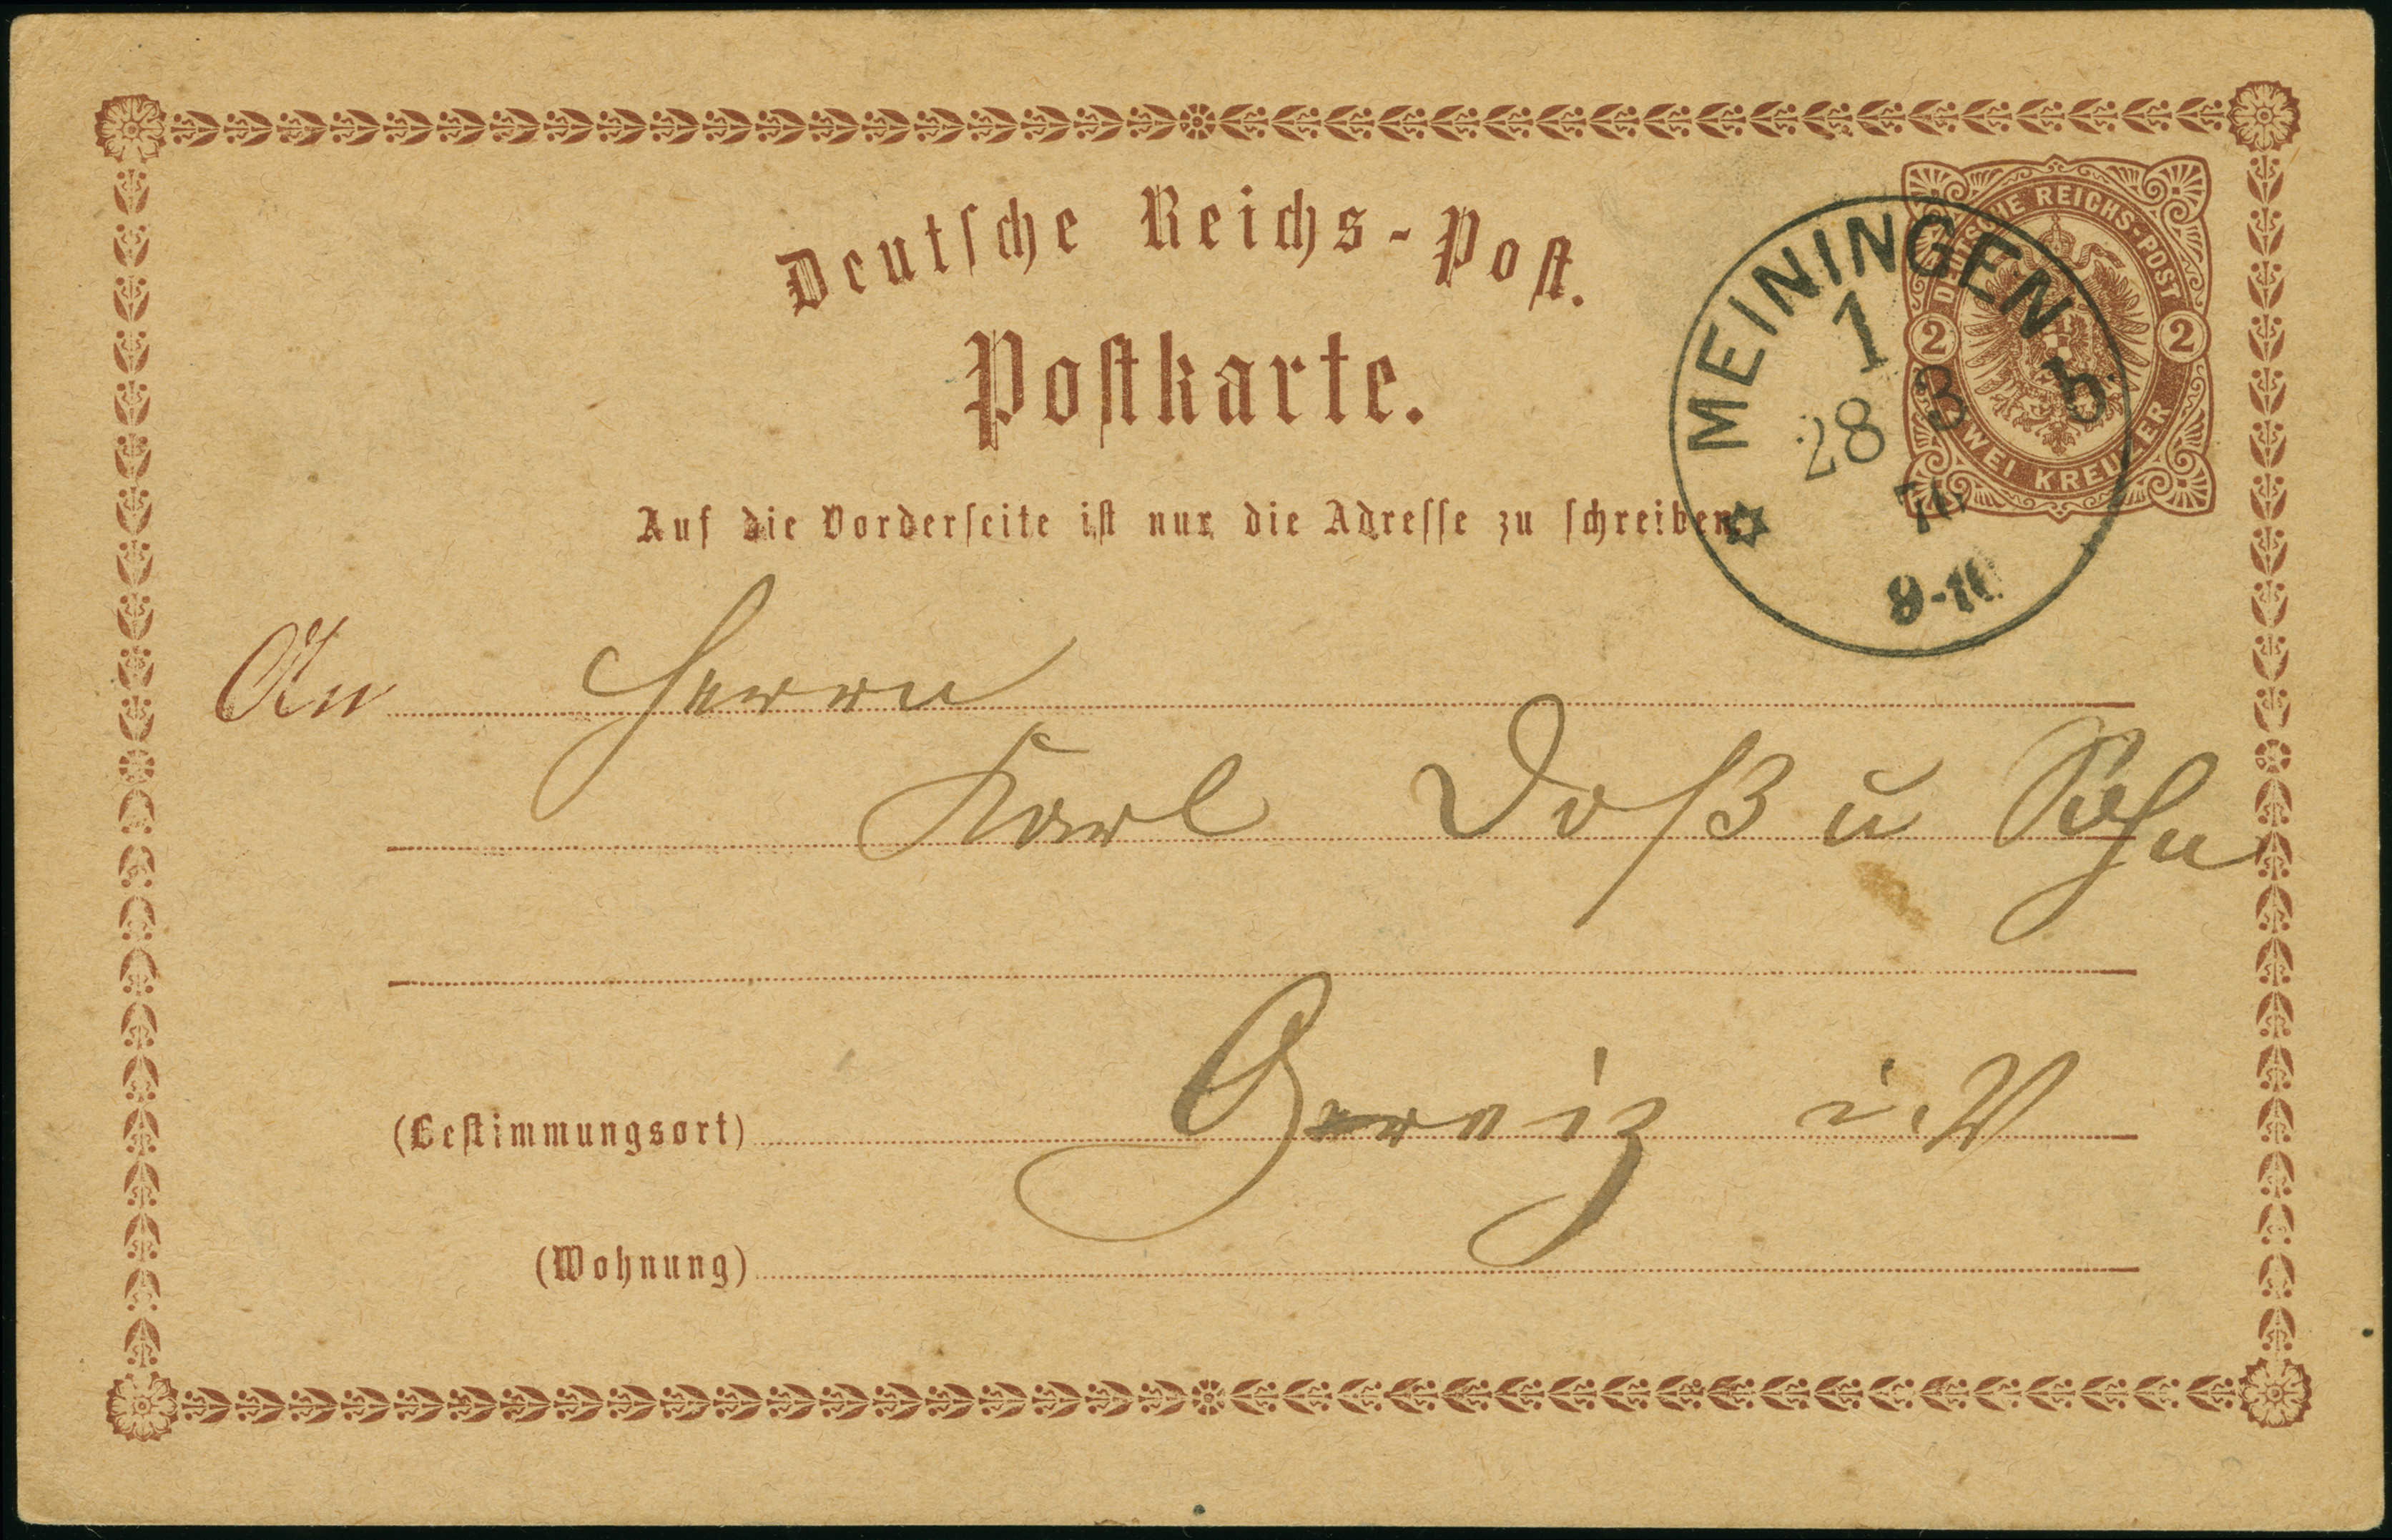 Deutsche Reichs-Post.
Postkarte.
Auf die Vorderseite ist nur die Adresse zu schreiben.
DEUTSCHE REICHS-POST
2 2
ZWEI KREUZER
MEININGEN
1 b
28 3
9-10
An Herrn
Karl Doß u Sohn
(Bestimmungsort) Greiz i. V
(Wohnung)